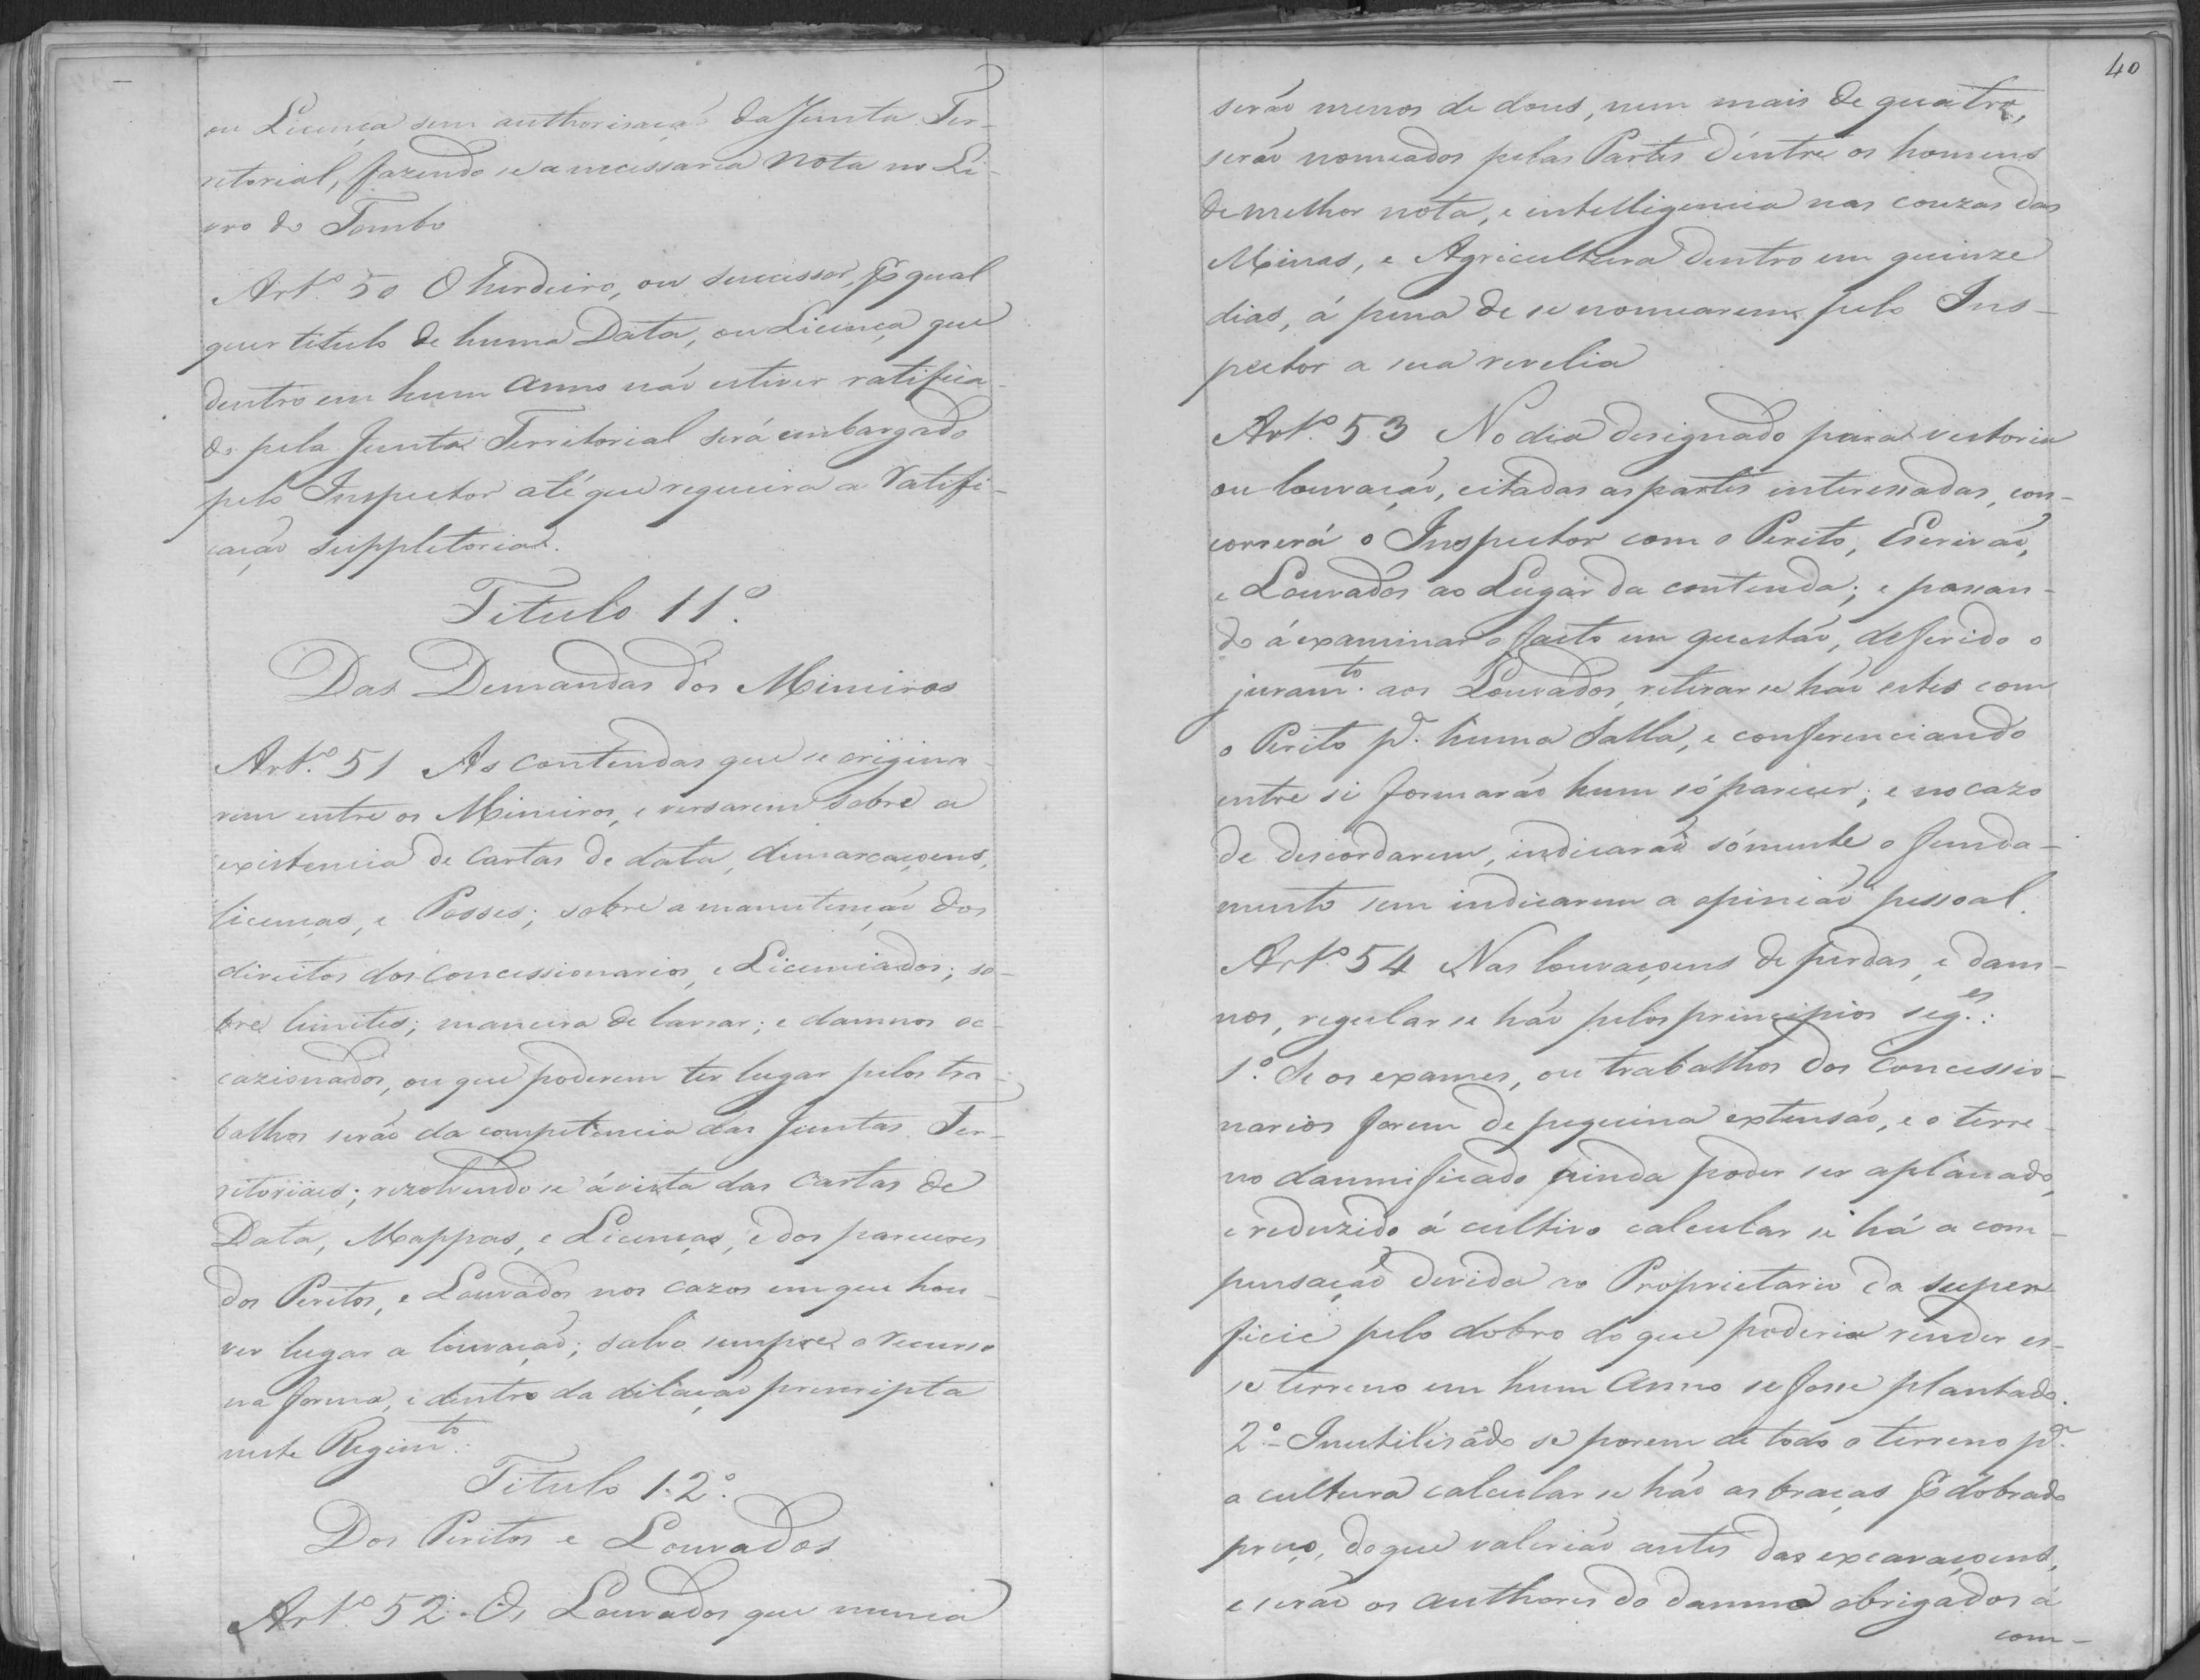 ou Licença sem authorisaçaõ da Junta Ter-
ritorial, fazendo se a necessaria Nota no Li-
vro do Tombo
Art.º 50 O herdeiro, ou sucessor, pr qual
quer titulo de huma Data, ou Licença, que
dentro em hum anno não estiver ratifica-
do pela Junta Territorial será embargado
pelo Inspector até que requeira a ratifi-
cação suppletoria.
Titulo 11º.
Das Demandas dos Mineiros
Art.º 51 As contendas que se origina-
rem entre os Mineiros, e versarem sobre a
existencia de cartas de data, demarcaçoens,
licenças, e Posses; sobre a manutenção dos
direitos dos concessionarios, e Licenciados; so-
bre limites; maneira de lavrar; e damnos oc-
cazionados, ou que poderem ter lugar pelos tra-
balhos serão da competencia das Juntas Ter-
ritoriáes; rezolvendo se á vista das Cartas de
Data, Mappas, e Licenças, e dos pareceres
dos Peritos, e Louvados nos cazos em que hou-
ver lugar a louvação; salvo sempre o recurso
na forma, e dentro da dilação prescripta
neste Regimto.
Titulo 12º.
Dos Peritos e Louvados
Art.º 52. Os Louvados que nunca
40
serão menos de dous, nem mais de quatro,
serão nomeados pelas Partes d'entre os homens
de melhor nota, e intelligencia nas couzas das
Minas, e Agricultura dentro em quinze
dias, á pena de se nomearem pelo Ins-
pector a sua revelia
Art.º 53 No dia designado para vestoria
ou louvação, citadas as partes interessadas, con-
correrá o Inspector com o Perito, Escrivão,
e Louvados ao Lugar da contenda; e passan-
do á examinar o facto em questão, deferido o
juramto. aos Louvados, retirar se hão estes com
o Perito pª. huma Salla, e conferenciando
entre si formarão hum só parecer; e no cazo
de discordarem, indicarão sómente o funda-
mento sem indicarem a opinião pessoal.
Art.º 54 Nas louvaçoens de perdas, e dam-
nos, regular se hão pelos principios seges.:
1º. Se os exames, ou trabalhos dos Concessio-
narios forem de pequena extensão, e o terre-
no damnificado ainda poder ser aplanado,
e reduzido á cultivo calcular se há a com-
pensação devida ao Proprietario da super-
ficie pelo dobro do que poderia render es-
se terreno em hum anno se fosse plantado.
2º- Inutilisádo se porem de todo o terreno pª.
a cultura calcular se hão as braças pr dobrado
preço, do que valerião antes das excavaçoens,
e serão os authores do damno obrigados á
com-